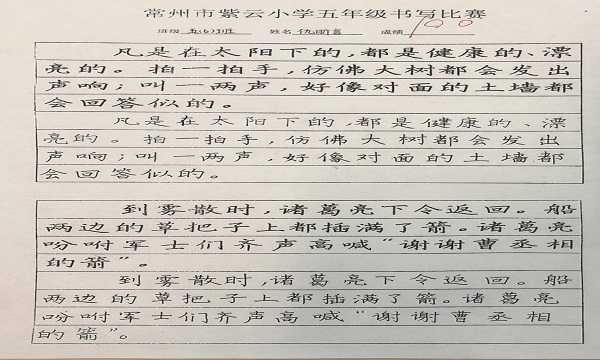 常州市紫云小学五年级书写比赛
班级 五(6)班 姓名 仇昕言 成绩 100
凡是在太阳下的，都是健康的、漂
亮的。拍一拍手，仿佛大树都会发出
声响；叫一两声，好像对面的土墙都
会回答似的。
凡是在太阳下的，都是健康的、漂
亮的。拍一拍手，仿佛大树都会发出
声响；叫一两声，好像对面的土墙都
会回答似的。
到雾散时，诸葛亮下令返回。船
两边的草把子上都插满了箭。诸葛亮
吩咐军士们齐声高喊“谢谢曹丞相
的箭”。
到雾散时，诸葛亮下令返回。船
两边的草把子上都插满了箭。诸葛亮
吩咐军士们齐声高喊“谢谢曹丞相
的箭”。